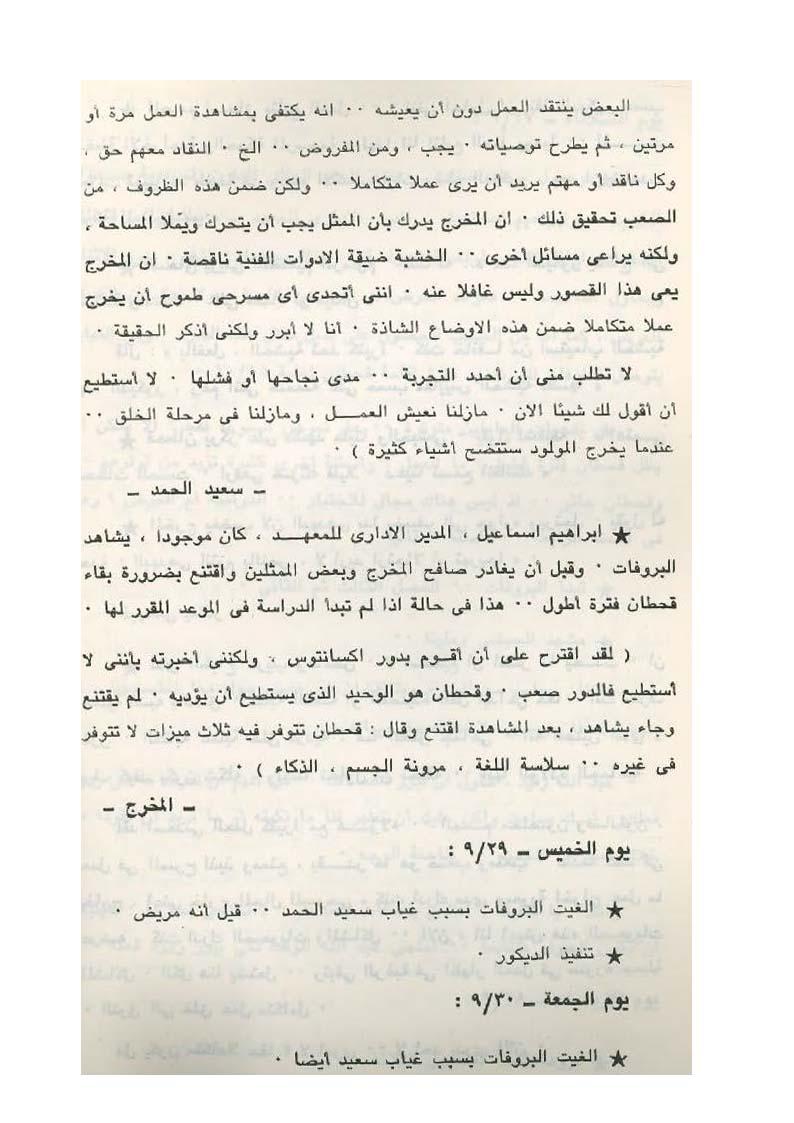 البعض ينتقد العمل دون أن يعيشه ٠٠ انه يكتفى بمشاهدة العمل مرة أو
مرتين ، ثم يطرح توصياته ٠ يجب ، ومن المفروض ٠٠ الخ ٠ النقاد معهم حق ،
وكل ناقد أو مهتم يريد أن يرى عملا متكاملا ٠٠ ولكن ضمن هذه الظروف ، من
الصعب تحقيق ذلك ٠ ان المخرج يدرك بأن الممثل يجب أن يتحرك ويملا المساحة ،
ولكنه يراعى مسائل أخرى ٠٠ الخشبة ضيقة الادوات الفنية ناقصة ٠ ان المخرج
يعى هذا القصور وليس غافلا عنه ٠ اننى أتحدى أى مسرحى طموح أن يخرج
عملا متكاملا ضمن هذه الاوضاع الشاذة ٠ أنا لا أبرر ولكنى أذكر الحقيقة ٠
لا تطلب منى أن أحدد التجربة ٠٠ مدى نجاحها أو فشلها ٠ لا أستطيع
أن أقول لك شيئا الان ٠ مازلنا نعيش العمـــل ، ومازلنا فى مرحلة الخلق ٠٠
عندما يخرج المولود ستتضح أشياء كثيرة ) ٠
ــ سعيد الحمد ــ
★ ابراهيم اسماعيل ، المدير الادارى للمعهـــد ، كان موجودا ، يشاهد
البروفات ٠ وقبل أن يغادر صافح المخرج وبعض الممثلين واقتنع بضرورة بقاء
قحطان فترة أطول ٠٠ هذا فى حالة اذا لم تبدأ الدراسة فى الموعد المقرر لها ٠
( لقد اقترح على أن أقـوم بدور اكسانتوس ، ولكننى أخبرته بأننى لا
أستطيع فالدور صعب ٠ وقحطان هو الوحيد الذى يستطيع أن يؤديه ٠ لم يقتنع
وجاء يشاهد ، بعد المشاهدة اقتنع وقال : قحطان تتوفر فيه ثلاث ميزات لا تتوفر
فى غيره ٠٠ سلاسة اللغة ، مرونة الجسم ، الذكاء ) ٠
ــ المخرج ــ
يوم الخميس ــ ٩/٢٩ :
★ الغيت البروفات بسبب غياب سعيد الحمد ٠٠ قيل أنه مريض ٠
★ تنفيذ الديكور ٠
يوم الجمعة ــ ٩/٣٠ :
★ الغيت البروفات بسبب غياب سعيد أيضا ٠